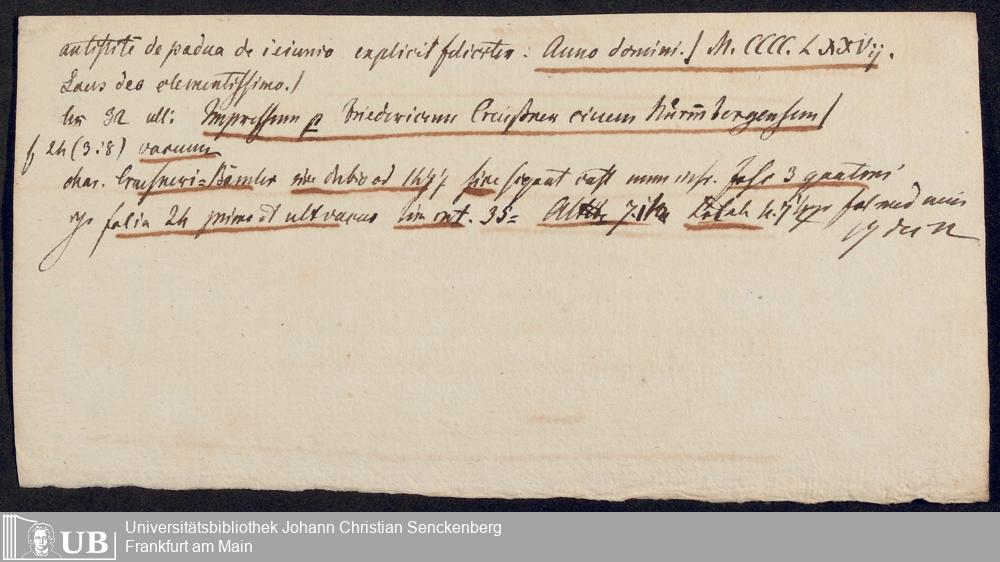 antistitē de padua de ieiunio explicit feliciter : Anno domini./ M. CCCC. LXXVij.
Laus deo clementissimo./
lin 32 ult: Impressum p Friedericum Creüsner civem Nurmbergensem/
f 24 (3:8) vacuum
char. Creüsneri = Bämler sine dubio ad 1477 sine signat cust num impr. fasc 3 quaterni
folia 24 primo et ult vacuo lin int. 35=
UB
Universitätsbibliothek Johann Christian Senckenberg
Frankfurt am Main